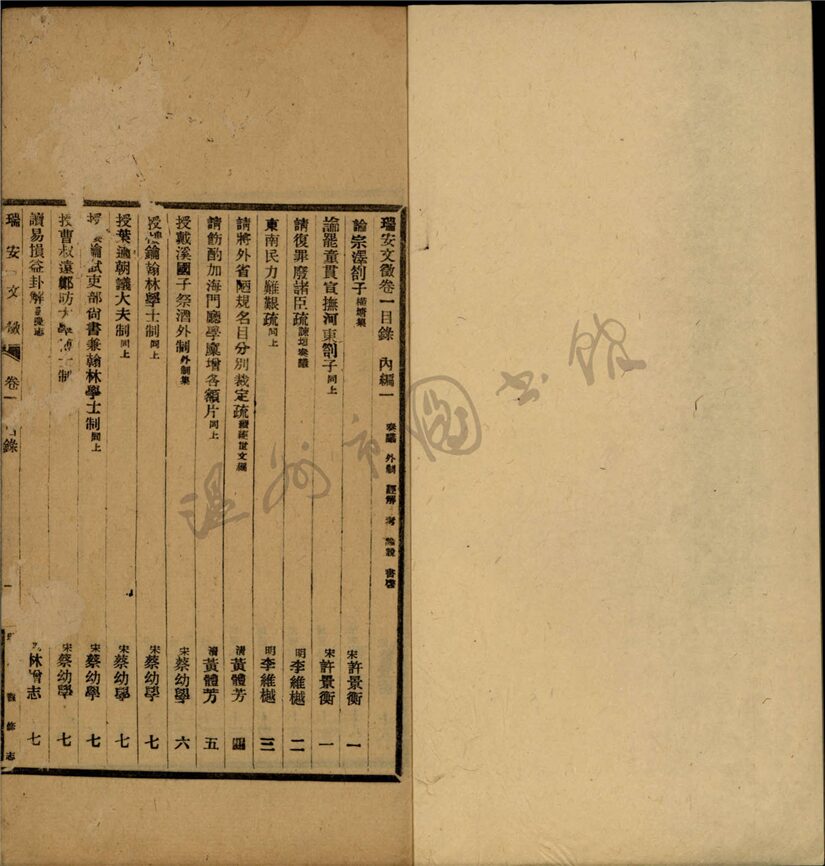 瑞安文徵卷一目錄 內編一 奏議 外制 經解 考 論說 書啓
論宗澤劄子橫塘集 宋許景衡 一
論罷童貫宣撫河東劄子同上 宋許景衡 一
請復罪廢諸臣疏諫垣奏議 明李維樾 二
東南民力難艱疏同上 明李維樾 三
請將外省陋規名目分別裁定疏續經世文編 清黃體芳 四
請飭酌加海門廳學廩增各額片同上 清黃體芳 五
授戴溪國子祭酒外制外制集 宋蔡幼學 六
授 鑰翰林學士制同上 宋蔡幼學 七
授葉適朝議大夫制同上 宋蔡幼學 七
授 鑰試吏部尚書兼翰林學士制同上 宋蔡幼學 七
授曹叔遠鄭昉 學 制 宋蔡幼學 七
讀易損益卦解 林增志 七
瑞安文徵 卷一 目錄 一
溫州市圖書館